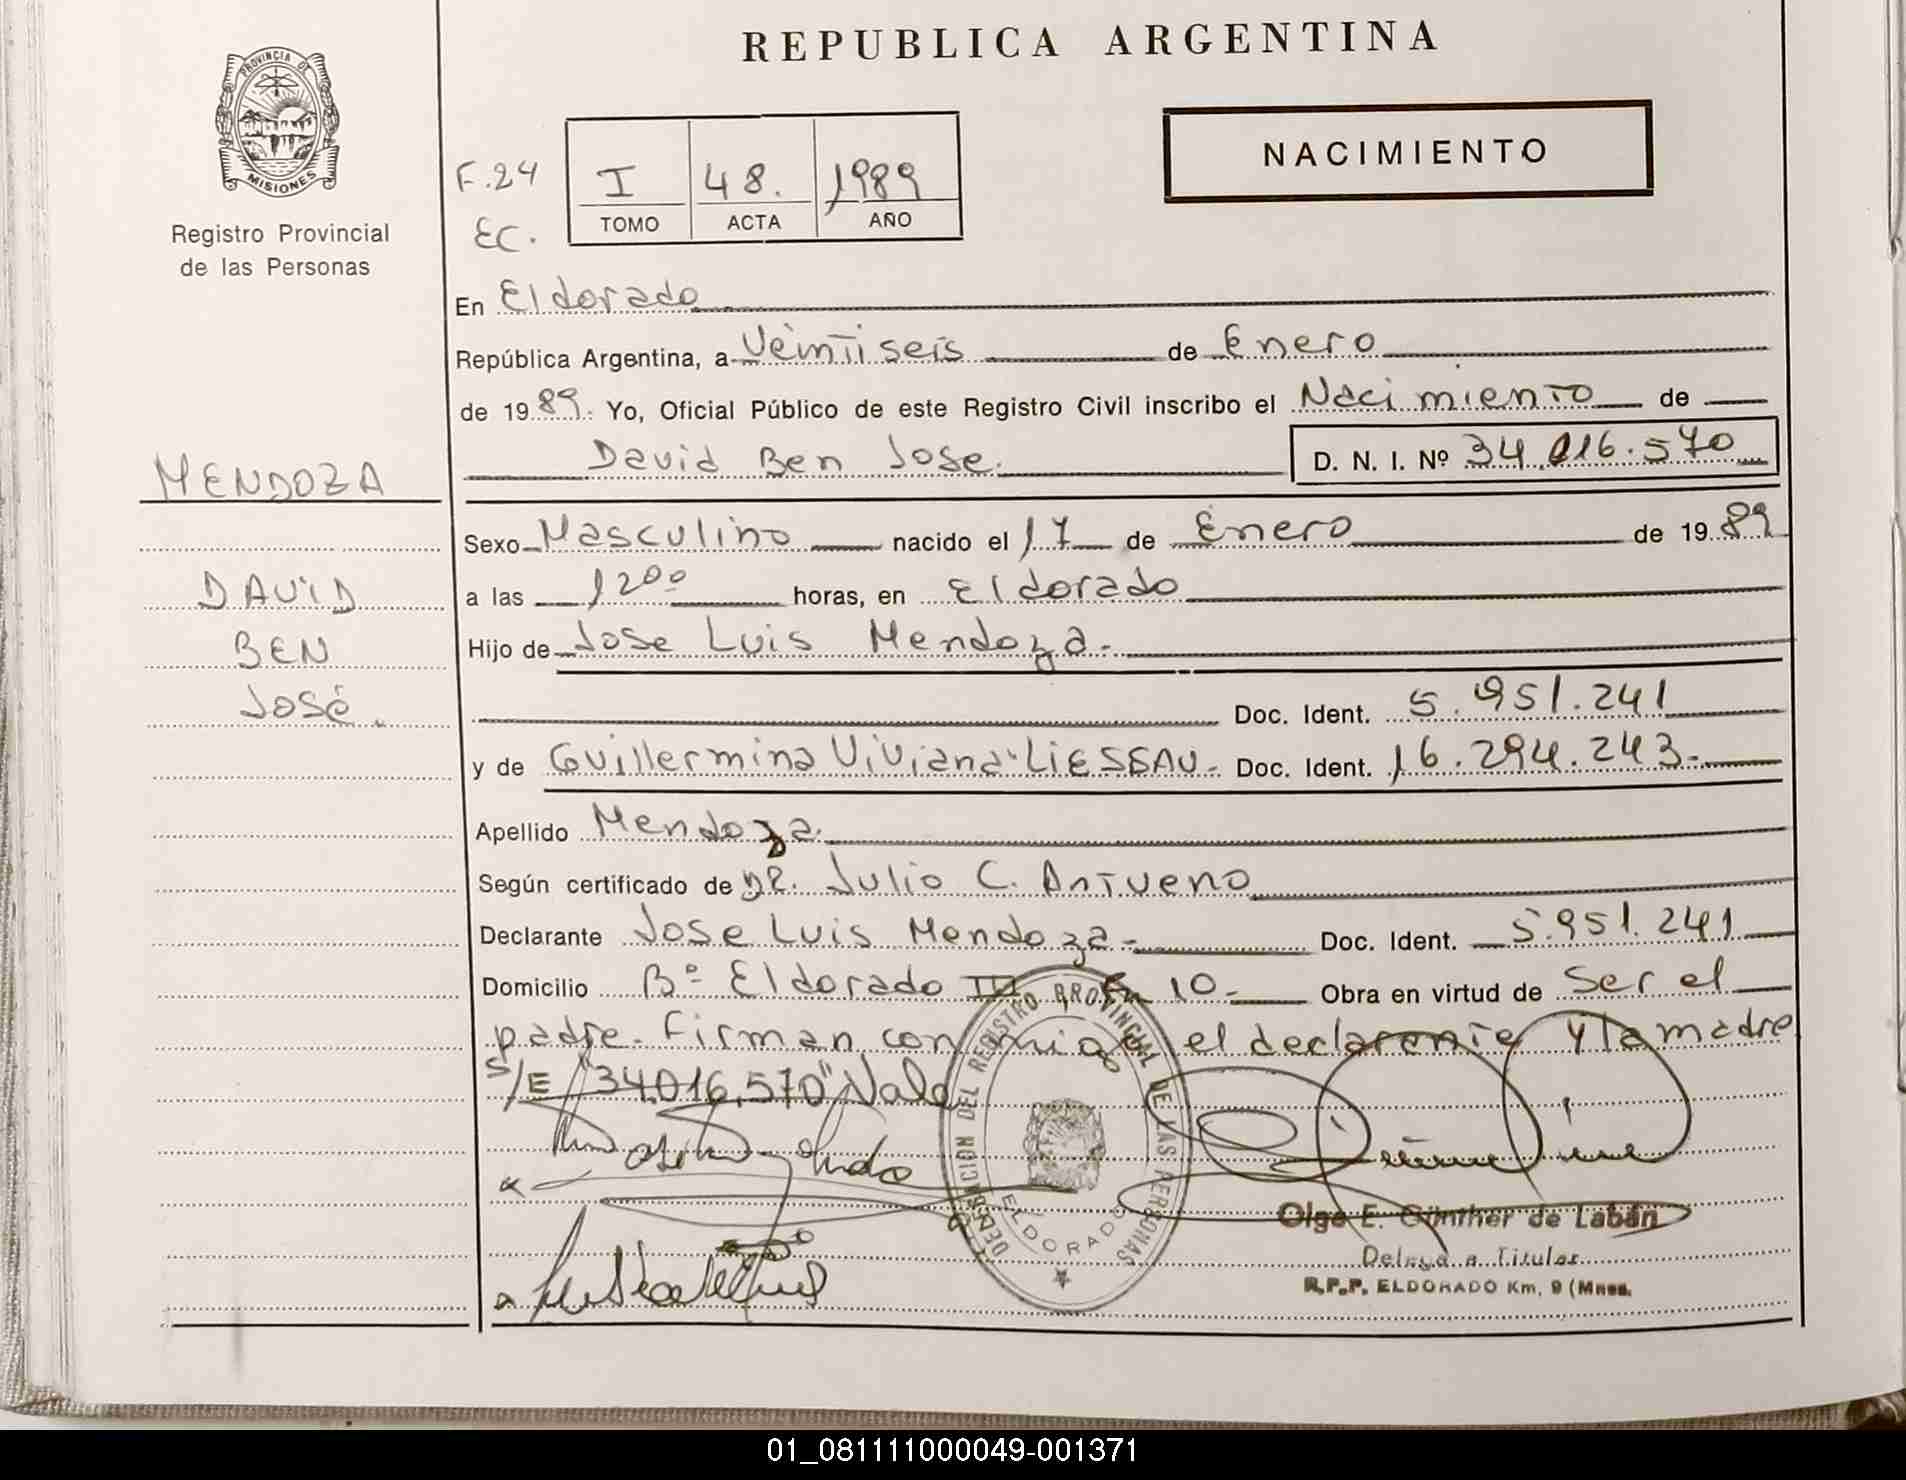 REPUBLICA ARGENTINA
PROVINCIA DE
MISIONES
Registro Provincial
de las Personas
NACIMIENTO
F.24
EC.
I 48. 1989
TOMO ACTA AÑO
En Eldorado
República Argentina, a Veintiseis de Enero
de 1989. Yo, Oficial Público de este Registro Civil inscribo el Nacimiento de
David Ben Jose. D. N. I. Nº 34.016.570
MENDOZA
DAVID
BEN
José.
Sexo Masculino nacido el 17 de Enero de 1989
a las 12⁰⁰ horas, en Eldorado
Hijo de Jose Luis Mendoza.
Doc. Ident. 5.951.241
y de Guillermina Viviana LIESSAU. Doc. Ident. 16.294.243.
Apellido Mendoza.
Según certificado de DR. Julio C. Antueno
Declarante Jose Luis Mendoza Doc. Ident. 5.951.241
Domicilio Bº Eldorado III 10. Obra en virtud de Ser el
padre. Firman conmigo el declarante y la madre
S/E "34.016.570" Vale
DELEGACION DEL REGISTRO PROVINCIAL DE LAS PERSONAS
ELDORADO
Olga E. Günther de Labán
Delegada Titular
R.P.P. ELDORADO Km. 9 (Mnes.
01_081111000049-001371